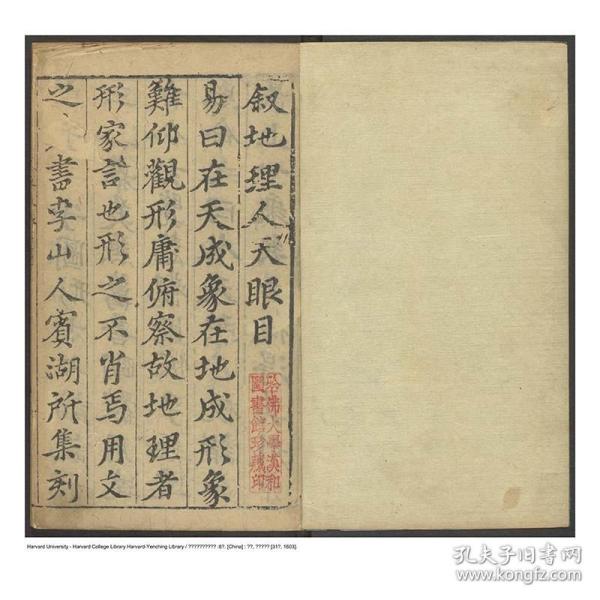 叙地理人天眼目
易曰在天成象在地成形象
難仰觀形庸俯察故地理者
形家言也形之不肖焉用文
之書字山人賓湖所集刻
哈佛大學漢和
圖書館珍藏印
Harvard University - Harvard College Library Harvard-Yenching Library / ?????????? :8?. [China] : ??, ????? [31?, 1603].
孔夫子旧书网
www.kongfz.com